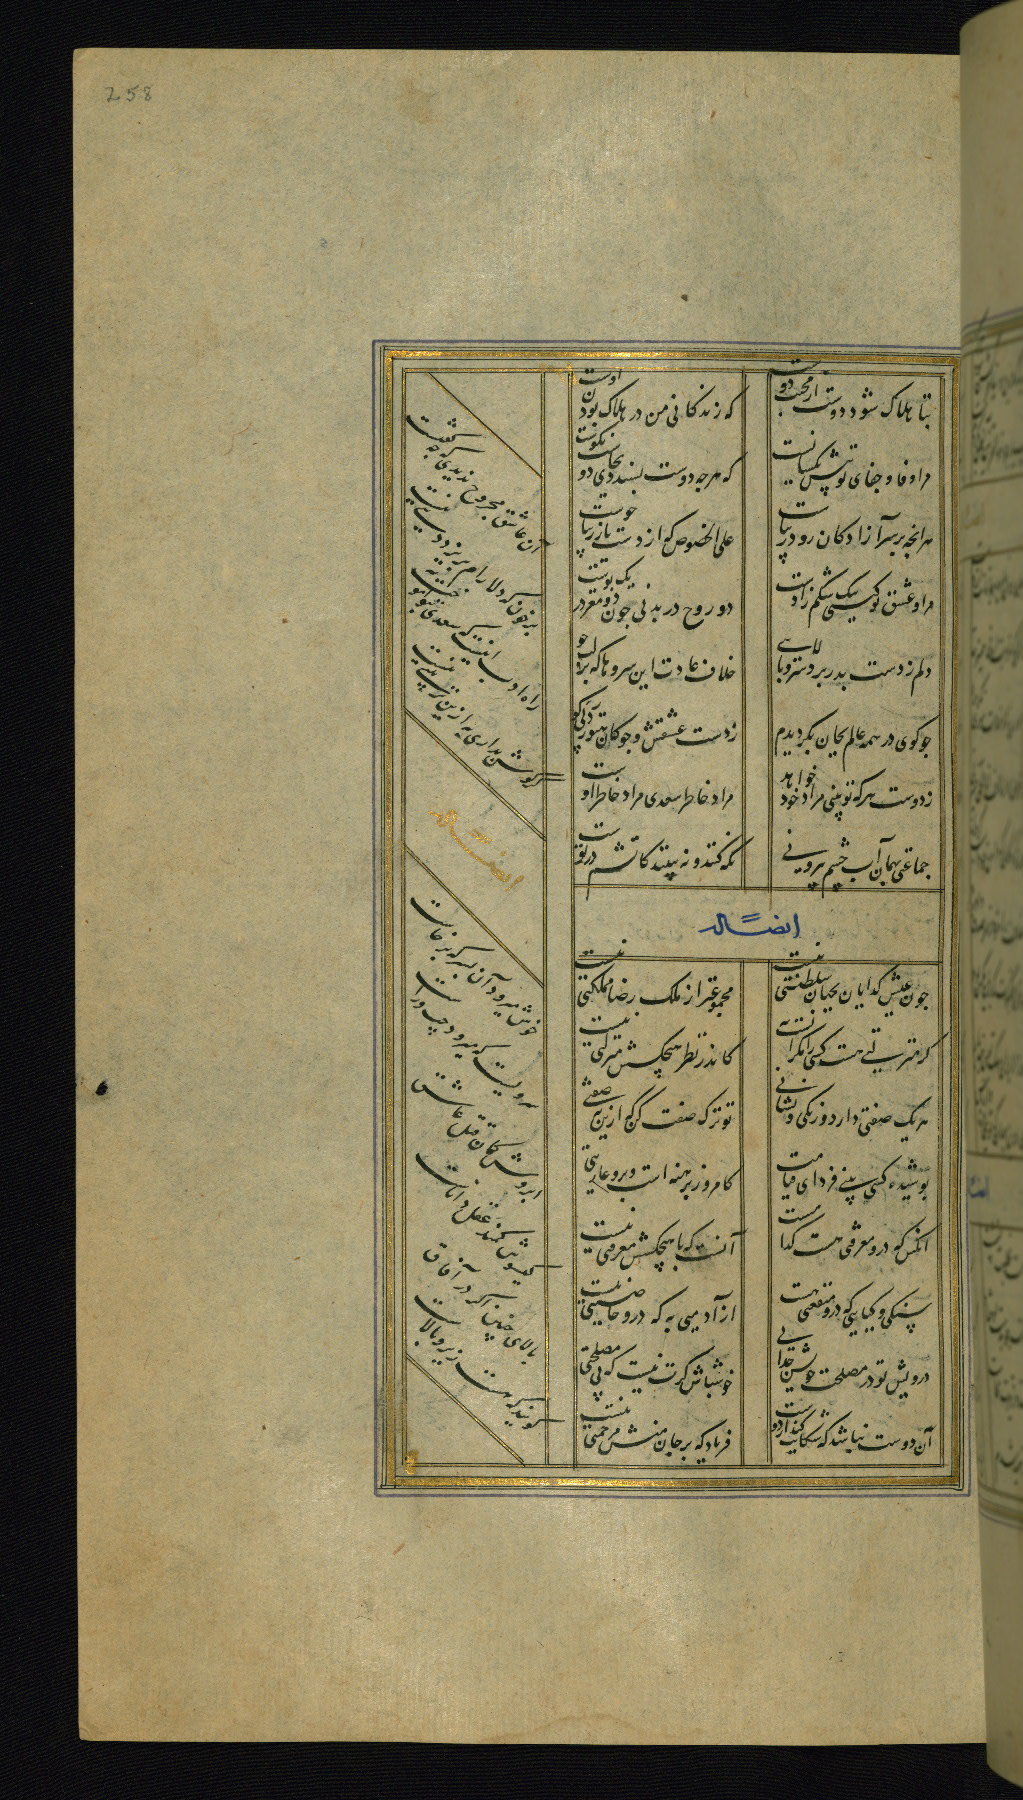 258
بتا هلاک شود دوست در محبت دوست
که زندگانی من در هلاک بودن اوست
مرا وفا و جفای تو پیش یکسانست
که هرچه دوست پسندد بجای دوست نکوست
هرانچه بر سر آزادگان رود زیباست
علی الخصوص که از دست یار زیباخوست
مرا و عشق تو گیتی بیک شکم زادست
دو روح در بدنی چون دو مغز در یک پوست
دلم ز دست بدر برد سروبالایی
خلاف عادت این سروها که بر لب جوست
چو گوی در همه عالم بجان بگردیدم
ز دست عشقش و چوگان هنوز در پی گوست
ز دوست هرکه تو بینی مراد خود خواهد
مراد خاطر سعدی مراد خاطر اوست
جماعتی بهمان آب چشم بیرونی
نگه کنند و نبینند کاتشم در توست
ایضا له
چون عیش گدایان بجهان سلطنتی نیست
مجموعتر از ملک رضا مملکتی نیست
گر منزلتی هست کسی را مگر آنست
کاندر نظر هیچکسش منزلتی نیست
هر یک صفتی دارد و رنگی و نشانی
تو ترک صفت کن که ازین به صفتی نیست
پوشیده کسی بینی فردای قیامت
کامروز برهنه است و برو عاریتی نیست
آنکس که درو معرفتی هست کدامست
آنست که با هیچکسش معرفتی نیست
سنگی و گیاهی که درو منفعتی هست
از آدمیی به که درو خاصیتی نیست
درویش تو در مصلحت خویش چه دانی
خوشباش گرت نیست که بی مصلحتی نیست
آن دوست نباشد که شکایت کند از دوست
فریاد که بر جان منش مرحمتی نیست
آن عاشق مجروح ندیدی که چه گفت
هر خون که دلارام بریزد دیتی نیست
راه ادب اینست که سعدی بتو آموخت
گر گوش بداری به ازین تربیتی نیست
ایضا له
خوش میرود آن پسر که برخاست
سرویست که میرود چپ و راست
ابروش کمان قتل عاشق
گیسوش کمند عقل داناست
بالای چنین اگر در آفاق
گویند که هست زیر و بالاست